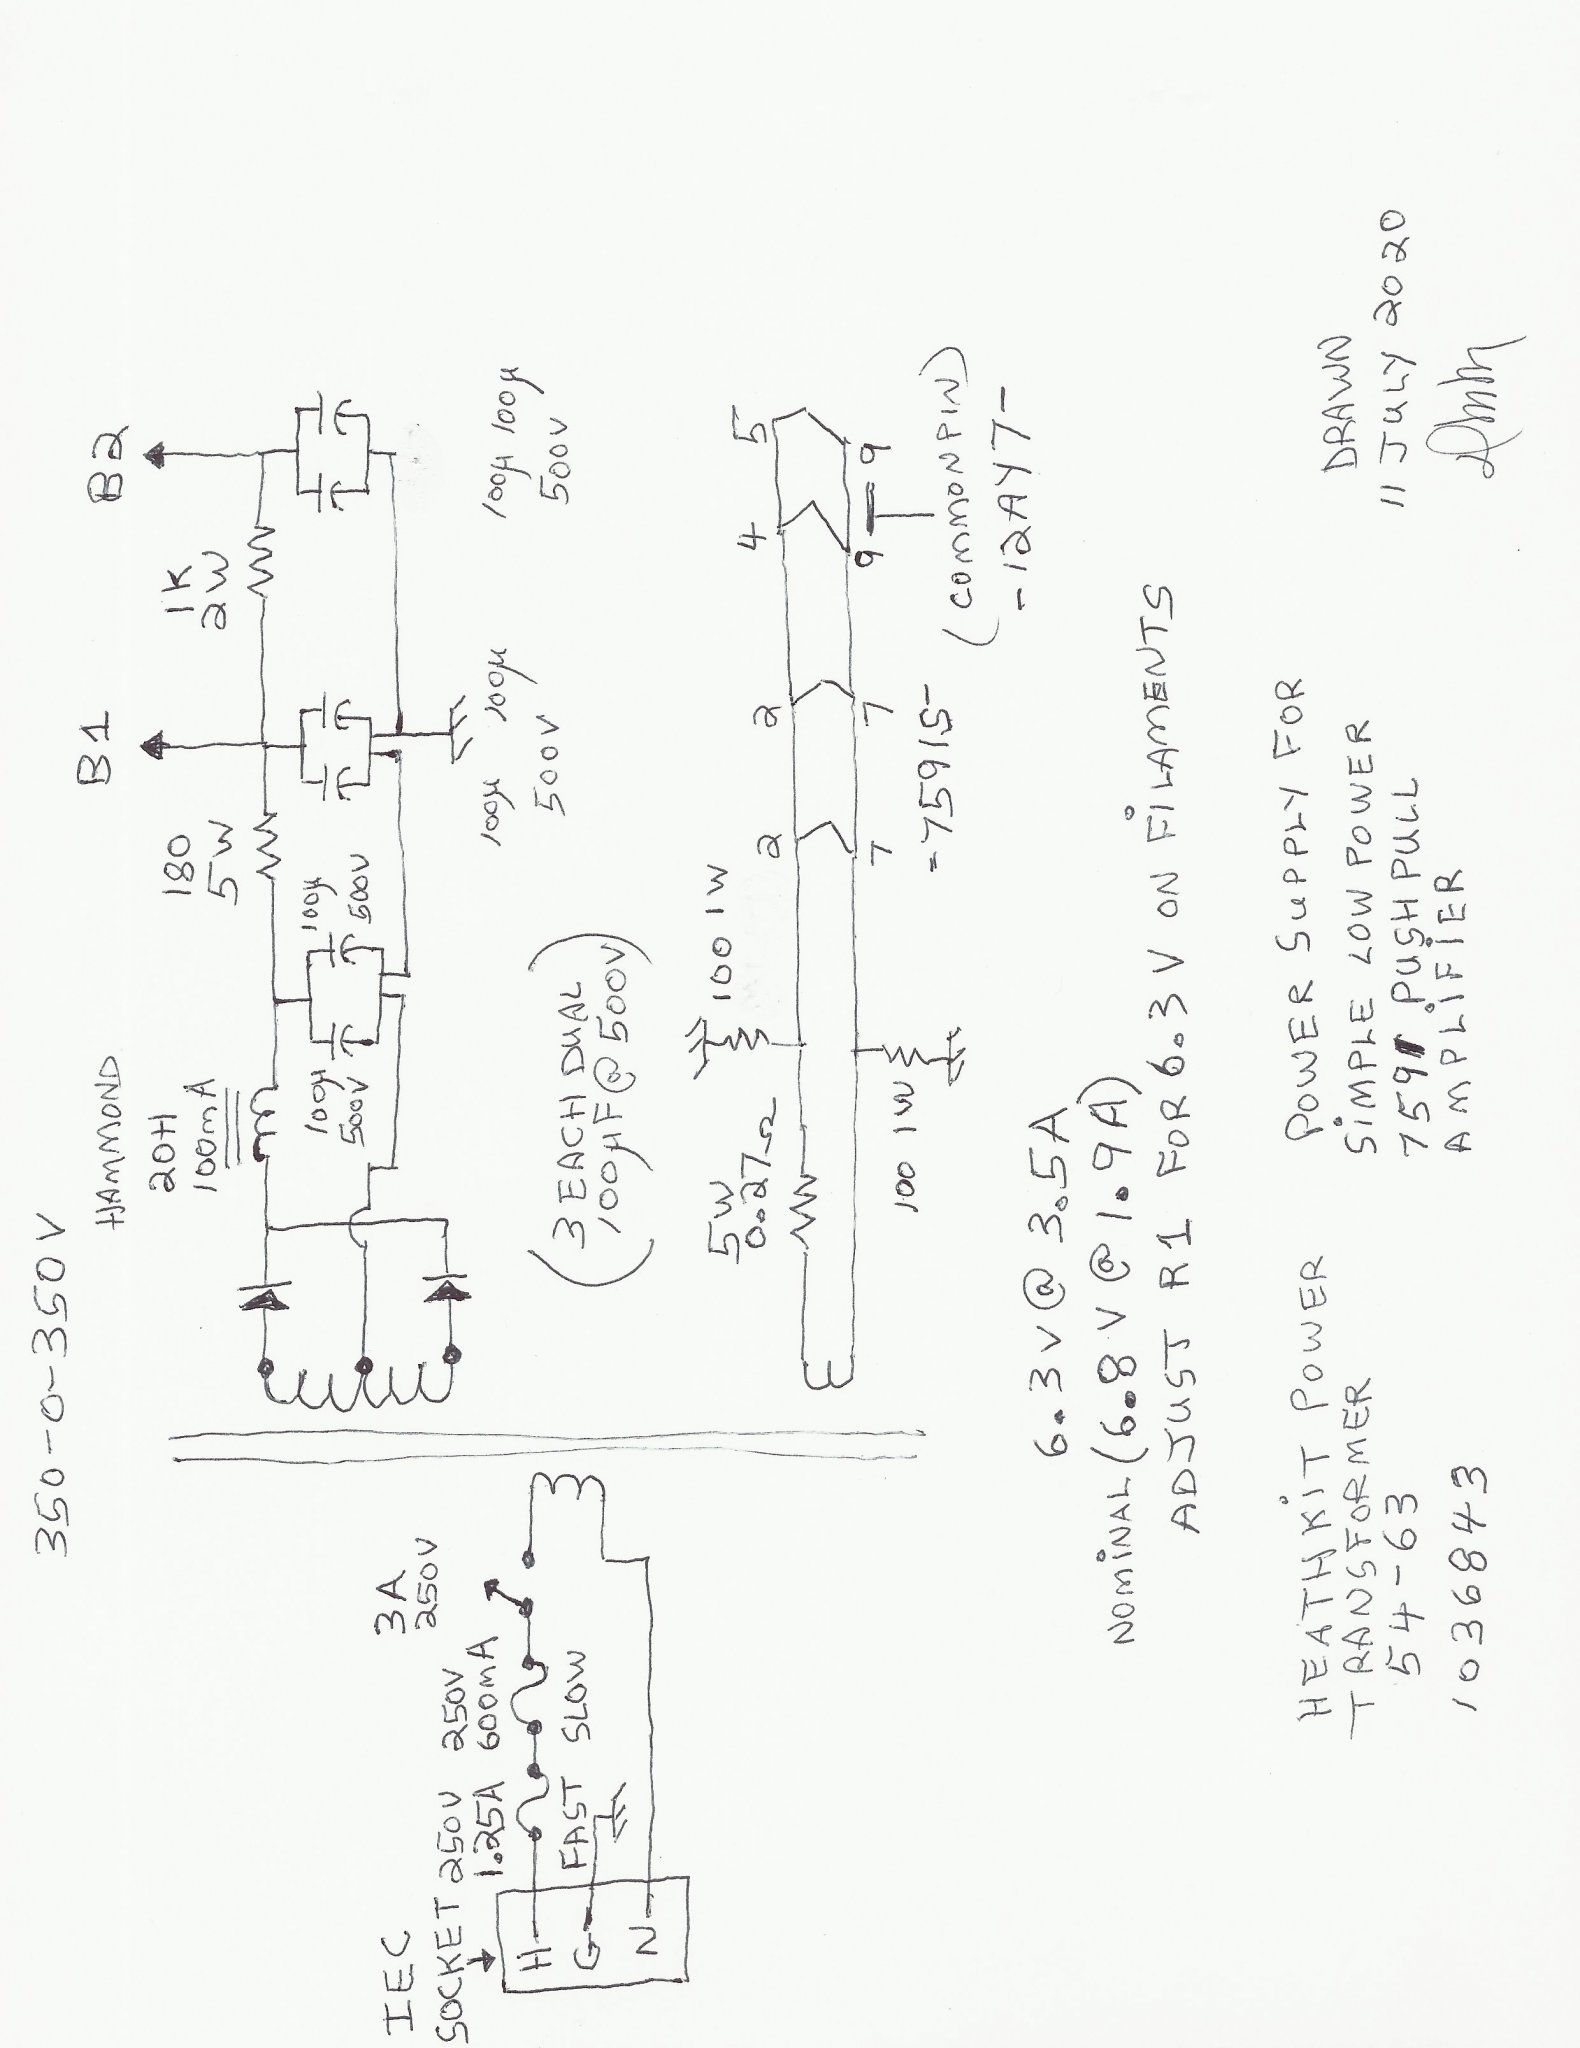 350-0-350V
HAMMOND
20H
100mA
180
5W
B1
1K
2W
B2
100µ
500V
100µ
500V
100µ 100µ
500V
100µ 100µ
500V
(3 EACH DUAL
100µF @ 500V)
IEC
SOCKET
H
G
N
250V
1.25A
FAST
250V
600mA
SLOW
3A
250V
5W
0.27Ω
100 1W
100 1W
2
7
2
7
-7591S-
4
9
5
9
(COMMON PIN)
-12AY7-
6.3V @ 3.5A
NOMINAL (6.8V @ 1.9A)
ADJUST R1 FOR 6.3V ON FILAMENTS
HEATHKIT POWER
TRANSFORMER
54-63
1036843
POWER SUPPLY FOR
SIMPLE LOW POWER
7591 PUSH PULL
AMPLIFIER
DRAWN
11 JULY 2020